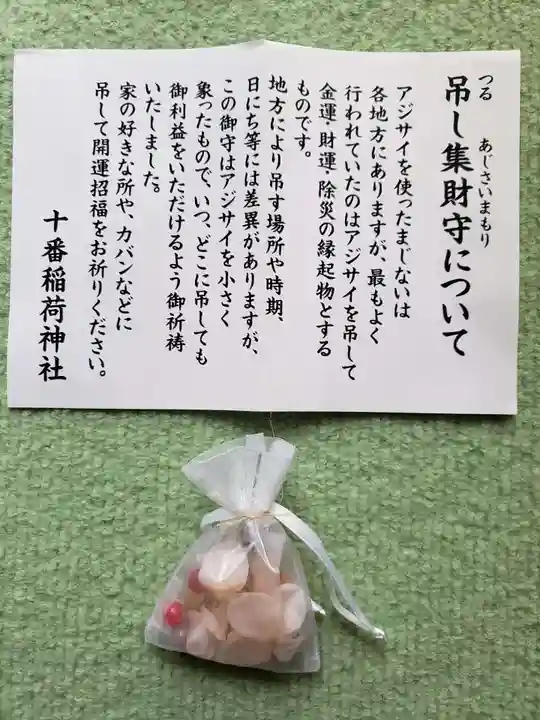 つる
あじさいまもり
吊し集財守について
アジサイを使ったまじないは
各地方にありますが、最もよく
行われていたのはアジサイを吊して
金運・財運・除災の縁起物とする
ものです。
地方により吊す場所や時期、
日にち等には差異がありますが、
この御守はアジサイを小さく
象ったもので、いつ、どこに吊しても
御利益をいただけるよう御祈祷
いたしました。
家の好きな所や、カバンなどに
吊して開運招福をお祈りください。
十番稲荷神社